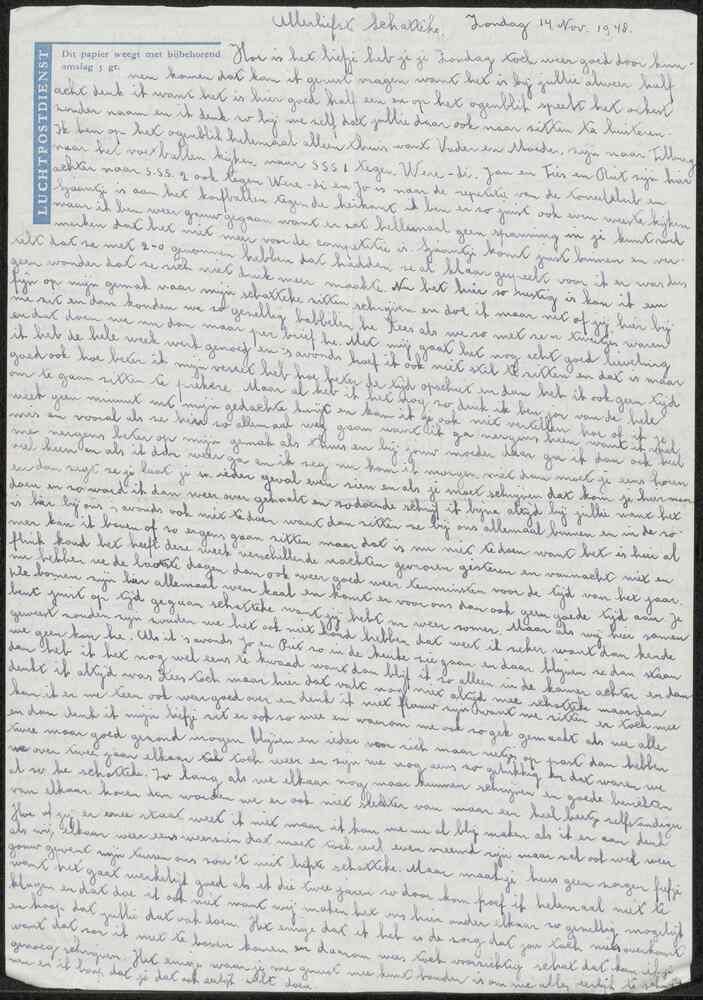 Allerliefste Schatteke, Zondag 14 Nov. 1948.
LUCHTPOSTDIENST
Dit papier weegt met bijbehorend
omslag 5 gr.
Hoe is het liefje heb je je Zondag toch weer goed door kun-
nen komen dat kan ik gerust vragen want het is bij jullie alweer half
acht denk ik want het is hier goed half een en op het ogenblik speelt het orkest
zonder naam en ik denk zo bij me zelf dat jullie daar ook naar zitten te luisteren.
Ik ben op het ogenblik helemaal alleen thuis want Vader en Moeder, zijn naar Tilburg
naar het voetballen kijken, naar S.S.S 1 tegen Were-di. Jan en Ties en Piet zijn hier
achter naar S.S.S. 2 ook tegen Were-di en Jo is naar de repetitie van de toneelclub en
Sjaantje is aan het korfballen tegen de heikant ik ben er zo juist ook even weeste kijken
maar ik ben weer gauw gegaan want er zat hellemaal geen spanning in je kunt wel
merken dat het niet meer voor de competitie is. Sjaantje komt juist binnen en ver-
telt dat ze met 2-0 gewonnen hebben dat hadden ze al klaar gespeelt voor ik er was dus
geen wonder dat ze zich niet druk meer maakte. Nu het hier zo rustig is kan ik een
fijn op mijn gemak naar mijn schatteke zitten schrijven en doe ik maar net of jij hier bij
me zit en dan konden we zo gezellig babbelen he Kees als we zo met ze'n tweetjes waren
en dat doen we nu dan maar per brief he. Met mij gaat het nog echt goed lieveling
ik heb de hele week werk genoeg en 's avonds hoef ik ook niet stil te zitten en dat is maar
goed ook hoe beter ik mijn verzet heb hoe beter de tijd opschiet en dan heb ik ook geen tijd
om te gaan zitten te piekere. Maar al heb ik het nog zo druk ik ben jou van de hele
week geen minuut uit mijn gedachte kwijt en kan ik je ook niet vertellen hoe of ik je
mis en vooral als ze hier zo allemaal weg gaan want ik ga nergens heen want ik voel
me nergens beter op mijn gemak als thuis en bij jouw moeder daar ga ik dan ook heel
veel heen en als ik dan weer ga en ik zeg nu kom ik morgen niet dan moet je eens horen
en dan zegt ze je laat je in ieder geval even zien en als je moet schrijven dat kan je hier maar
doen en zo word ik dan weer over gehaalt en zodoende schrijf ik bijna altijd bij jullie want het
is hier bij ons 's avonds ook niet te doen want dan zitten ze bij ons allemaal binnen en in de zo-
mer kan ik boven of zo ergens gaan zitten maar dat is nu niet te doen want het is hier al
flink koud het heeft deze week verschillende nachten gevroren gisteren en vannacht niet en
nu hebben we de laatste dagen dan ook weer goed weer tenminsten voor de tijd van het jaar.
De bomen zijn hier allemaal weer kaal en komt er voor ons dan ook geen goede tijd aan. Je
bent juist op tijd gegaan schatteke want jij hebt nu weer zomer. Maar als wij hier samen
geweest zouden zijn zouden we het ook niet koud hebben dat weet ik zeker want dan kende
we geen kou he. Als ik 's avonds Jo en Piet zo in de keuke zie gaan en daar blijven ze dan staan
dan heb ik het nog wel eens te kwaad want dan blijf ik zo alleen in de kamer achter en dan
denk ik altijd was Kees toch maar hier dat valt nog niet altijd mee schatteke maar dan
kan ik er me teen ook weer goed over en denk ik niet flauw zijn want we zitten er toch mee
en dan denk ik mijn liefje zit er ook zo mee en waarom me ook zo gek gemaakt als we alle
twee maar goed gezond mogen blijven en ieder voor zich maar netjes op past dan hebben
we over twee jaar elkaar toch weer en zijn we nog eens zo gelukkig en dat waren we
al zo he schatteke. Zo lang als we elkaar nog maar kunnen schrijven en goede berichten
van elkaar horen dan worden we er ook niet slechter van maar een heel beetje zelfstandiger
Hoe of jij er onder staat weet ik niet maar ik kan me nu al blij maken als ik er aan denk
als wij elkaar weer eens weerzien dat moet toch wel even vreemd zijn maar zal ook wel weer
gauw gewent zijn tussen ons zou 't niet liefste schatteke. Maar maak je heus geen zorgen liefje
want het gaat werkelijk goed als ik die twee jaren zo door kom hoef ik helemaal niet te
klagen en dat doe ik ook niet want wij maken het ons hier onder elkaar zo gezellig mogelijk
en hoop dat jullie dat ook doen. Het enige dat ik heb is de zorg dat jou toch niets overkomt
want dat zou ik niet te boven komen en daarom was toch voorzichtig schat dat kan ik je niet
genoeg schrijven. Het enige waar je me gerust mee kunt houden is om me alles eerlijk te schrij-
ven en ik hoop dat je dat ook eerlijk zult doen.